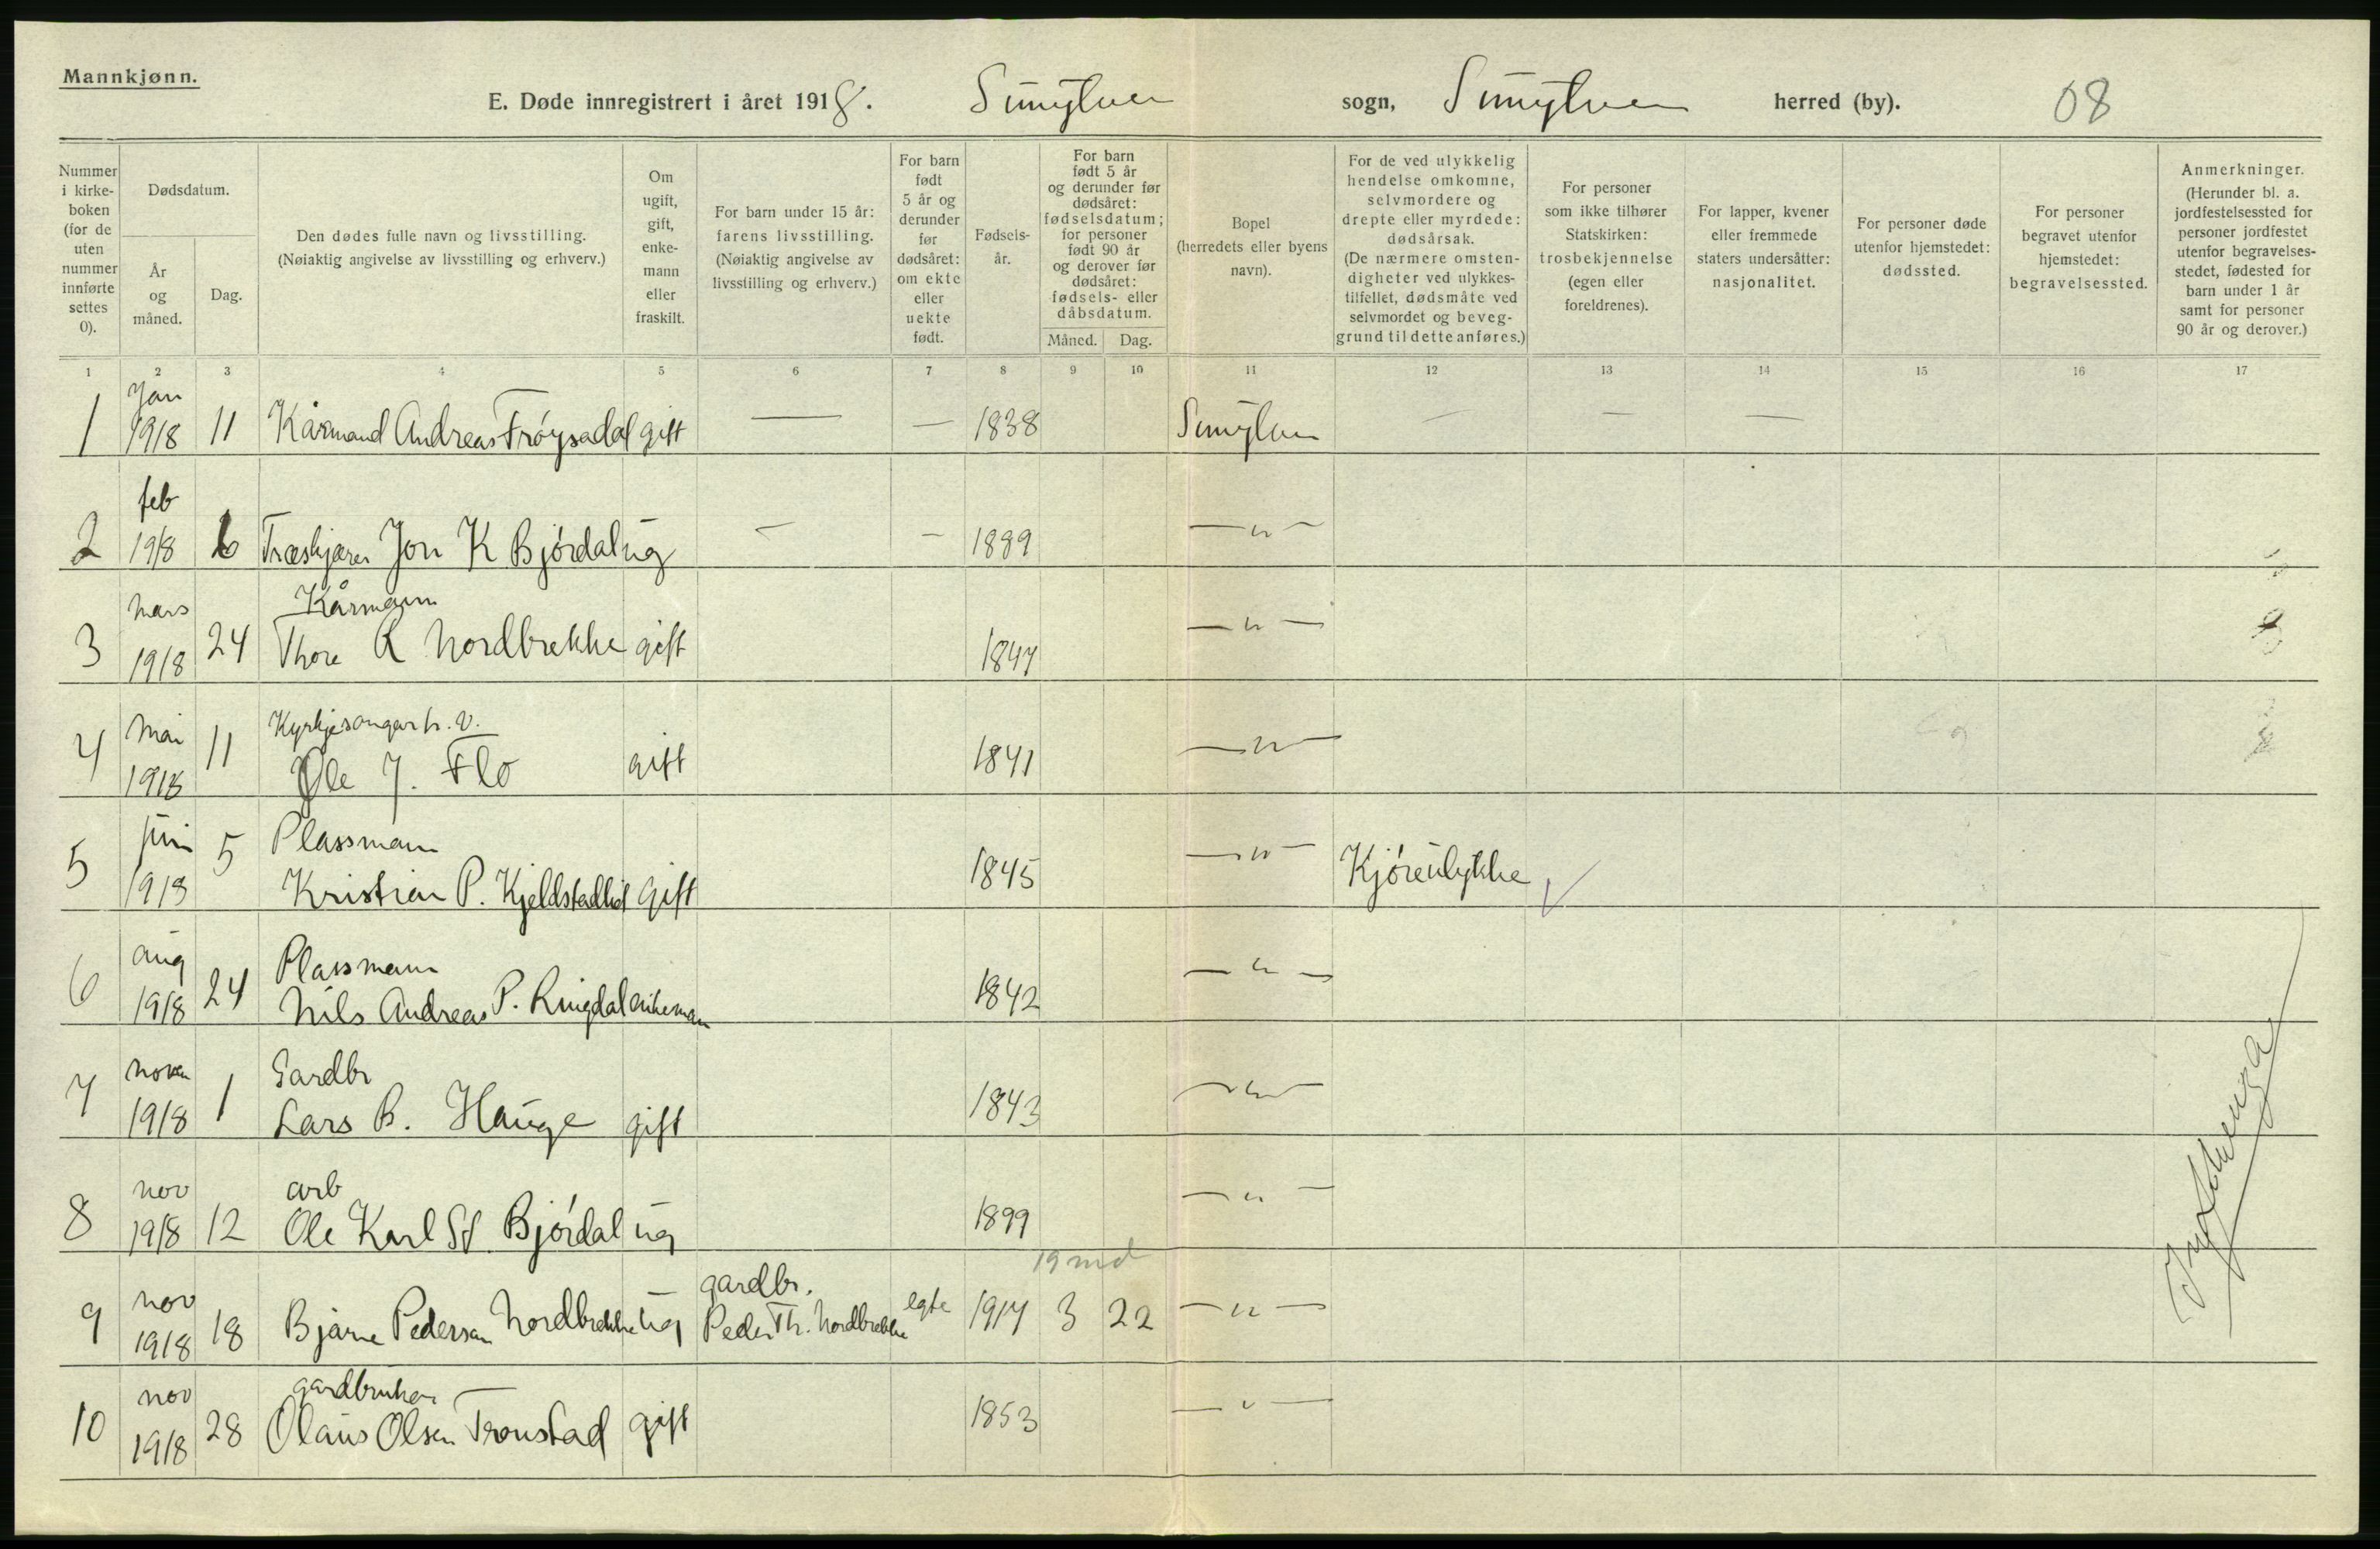 Mannkjønn.
E. Døde innregistrert i året 1918. Sunylven sogn, Sunylven herred (by). 08
Nummer i kirke-boken (for de uten nummer innførte settes 0).
Dødsdatum.
År og måned.
Dag.
Den dødes fulle navn og livsstilling.
(Nøiaktig angivelse av livsstilling og erhverv.)
Om ugift, gift, enke-mann eller fraskilt.
For barn under 15 år: farens livsstilling.
(Nøiaktig angivelse av livsstilling og erhverv.)
For barn født 5 år og derunder før dødsåret: om ekte eller uekte født.
Fødsels-år.
For barn født 5 år og derunder før dødsåret: fødselsdatum; for personer født 90 år og derover før dødsåret: fødsels- eller dåbsdatum.
Måned.
Dag.
Bopel
(herredets eller byens navn).
For de ved ulykkelig hendelse omkomne, selvmordere og drepte eller myrdede: dødsårsak.
(De nærmere omsten-digheter ved ulykkes-tilfellet, dødsmåte ved selvmordet og beveg-grund til dette anføres.)
For personer som ikke tilhører Statskirken: trosbekjennelse
(egen eller foreldrenes).
For lapper, kvener eller fremmede staters undersåtter: nasjonalitet.
For personer døde utenfor hjemstedet: dødssted.
For personer begravet utenfor hjemstedet: begravelsessted.
Anmerkninger.
(Herunder bl. a. jordfestelsessted for personer jordfestet utenfor begravelses-stedet, fødested for barn under 1 år samt for personer 90 år og derover.)
1 2 3 4 5 6 7 8 9 10 11 12 13 14 15 16 17
Jan
1 1918 11 Kårmand Andreas Frøysadal gift — — 1838 Sunylven — — —
feb
2 1918 6 Træskjærer Jon K Bjørdal ug — — 1889 — " —
mars Kårmann
3 1918 24 Thore R Nordbrekke gift 1847 — " —
mai Kyrkjesongar h. v.
4 1918 11 Ole J. Flo gift 1841 — " —
juni Plassmann
5 1918 5 Kristian P. Kjeldstadlid gift 1845 — " — Kjøreulykke
aug Plassmann
6 1918 24 Nils Andreas P. Ringdal enkeman 1842 — " —
noven Gardbr
7 1918 1 Lars B. Hauge gift 1843 — " —
nov arb
8 1918 12 Ole Karl Bjørdal ug 1899 — " —
19 md
nov gardbr.
9 1918 18 Bjarne Pedersen Nordbrekke ug Peder Th. Nordbrekke egte 1917 3 22 — " —
nov gardbruker
10 1918 28 Olaus Olsen Tronstad gift 1853 — " —